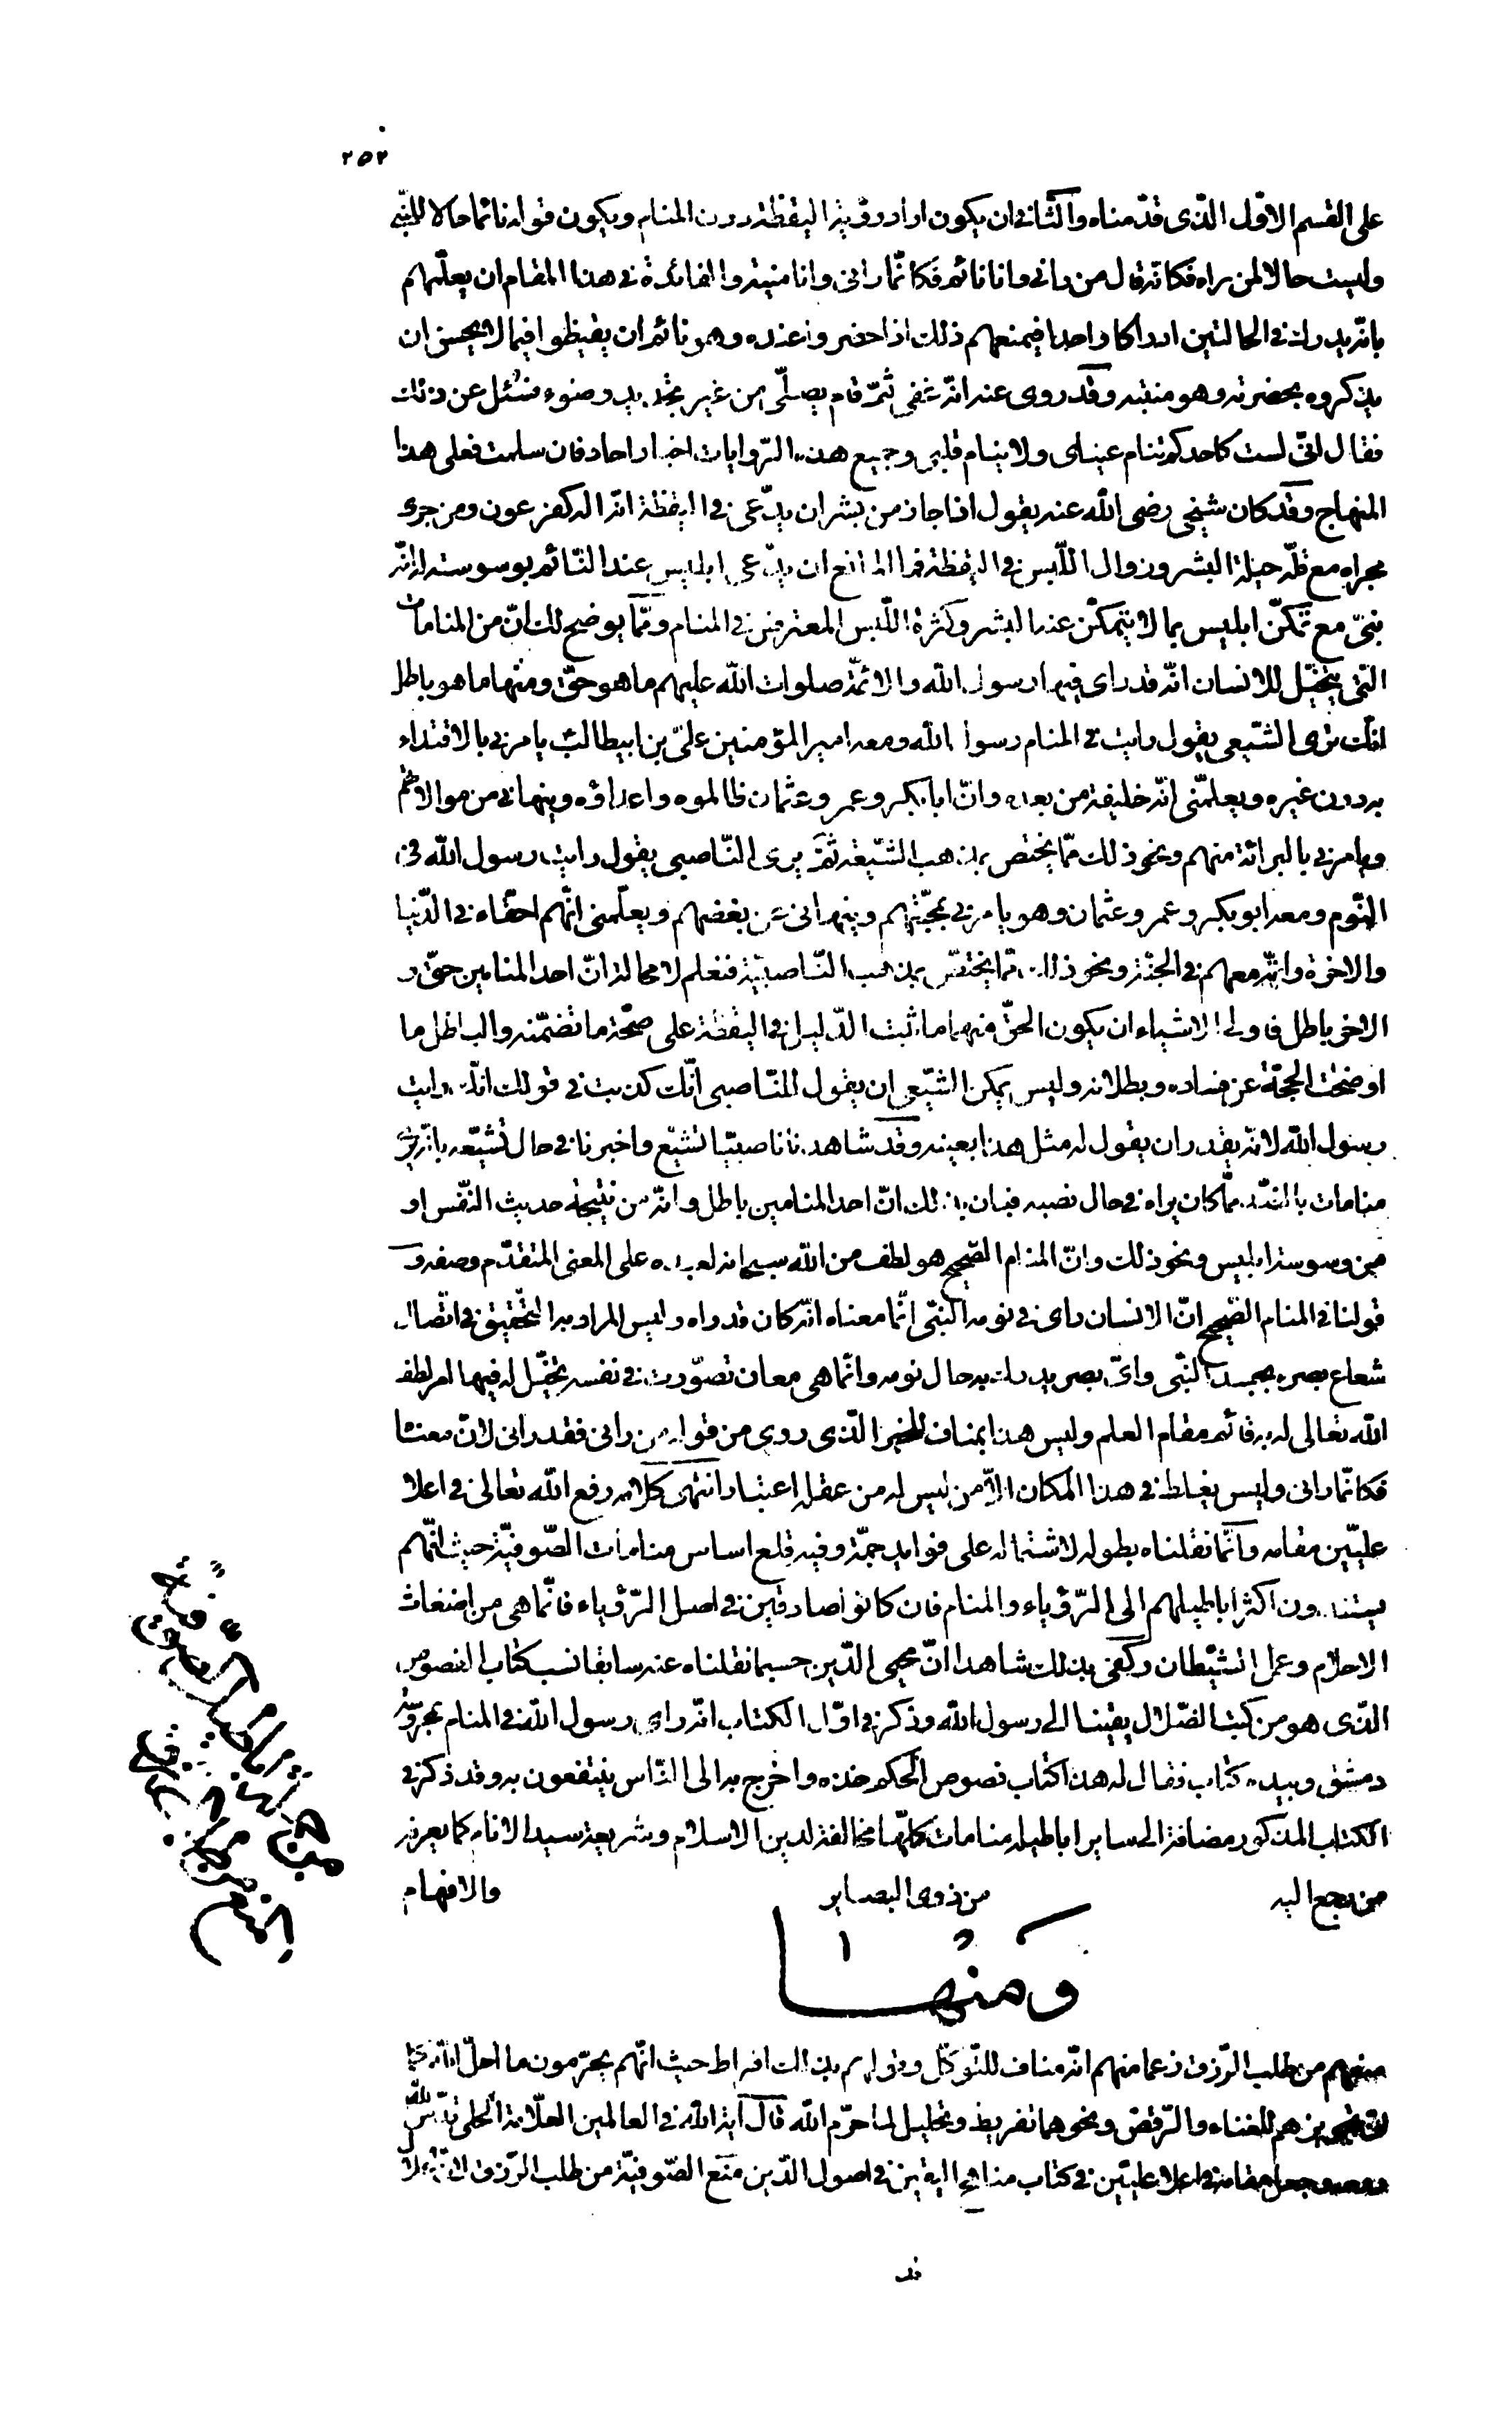 ٢٥٢
على القسم الاوّل الذى قدّمناه والثانى ان يكون اراد رؤية اليقظة دون المنام ويكون قوله نائما حالا للنّبى
وليست حالا لمن راه فكانّه قال من رانى وانا نائم فكانّما رانى وانا منتبه والفائدة فى هذا المقام ان يعلّمهم
بانّه يدرك فى الحالتين ادراكا واحدا فيمنعهم ذلك اذا حضروا عنده وهو نائم ان يفيضوا فيما لا يحسن ان
يذكروه بحضرته وهو منتبه وقد روى عنه انّه غفى ثمّ قام يصلّى من غير تجديد وضوء فسُئل عن ذلك
فقال انّى لست كاحدكم تنام عيناى ولا ينام قلبى وجميع هذه الرّوايات اخبار احاد فان سلمت فعلى هذا
المنهاج وقد كان شيخى رضى الله عنه يقول اذا جاز من بشر ان يدّعى فى اليقظة انّه اله كفرعون ومن جرى
مجراه مع قلّة حيلة البشر وزوال اللّبس فى اليقظة فما المانع ان يدّعى ابليس عند النّائم بوسوسته له انّه
نبىّ مع تمكّن ابليس بما لا يتمكّن عنه البشر وكثرة اللّبس المعترض فى المنام وممّا يوضح لك انّ من المنامات
التى يتخيّل للانسان انّه قد راى فيها رسول الله والائمّة صلوات الله عليهم ما هو حقّ ومنها ما هو باطل
انّك ترى الشّيعى يقول رايت فى المنام رسول الله ومعه امير المؤمنين علىّ بن ابيطالب يامرنى بالاقتداء
به دون غيره ويعلمنى انّه خليفته من بعده وانّ ابابكر وعمر وعثمان ظالموه واعداؤه وينهانى من موالاتهم
ويامرنى بالبرائة منهم ونحو ذلك ممّا يختص بمذهب الشّيعة ثمّ يرى النّاصبى يقول رايت رسول الله فى
النّوم ومعه ابو بكر وعمر وعثمان وهو يامرنى بمحبّتهم وينهانى عن بغضهم ويعلمنى انّهم اصحابه فى الدّنيا
والاخرة وانّهم معه فى الجنّة ونحو ذلك ممّا يختصّ بمذهب النّاصبيّة فنعلم لا محالة انّ احد المنامين حقّ و
الاخر باطل فاولى الاشياء ان يكون الحقّ منهما ما ثبت الدّليل فى اليقظة على صحّة ما تضمّنه والباطل ما
اوضحت الحجّة عن فساده وبطلانه وليس يمكن الشيّعى ان يقول للنّاصبى انّك كذبت فى قولك انّك رايت
رسول الله لانّه يقدر ان يقول له مثل هذا بعينه وقد شاهدنا ناصبيّا تشيّع واخبرنا فى حال تشيّعه بانّه يرى
منامات بالضّد ممّا كان يراه فى حال نصبه فبان بذلك انّ احد المنامين باطل وانّه من نتيجة حديث النّفس او
من وسوسة ابليس ونحو ذلك وانّ المنام الصّحيح هو لطف من الله سبحانه لعبده على المعنى المتقدّم وصفه و
قولنا فى المنام الصّحيح انّ الانسان راى فى نومه النّبى انّما معناه انّه كان قد راه وليس المراد به التّحقيق فى اتّصال
شعاع بصره بجسد النّبى واىّ بصر يدرك به حال نومه وانّما هى معان تصوّرت فى نفسه تخيّل له فيها امر لطف
الله تعالى له به قائم مقام العلم وليس هذا بمناف للخبر الذى روى من قوله من رانى فقد رانى لانّ معناه
فكانّما رانى وليس يغلط فى هذا المكان الّا من ليس له من عقله اعتبار انتهى كلامه رفع الله تعالى فى اعلا
عليّين مقامه وانّما نقلناه بطوله لاشتماله على فوايد جمّة وفيه قلع اساس منامات الصّوفيّة حيث انّهم
يستندون اكثر اباطيلهم الى الرّؤياء والمنام فان كانوا صادقين فى اصل الرّؤياء فانّما هى من اضغاث
الاحلام وعمل الشّيطان وكفى بذلك شاهدا انّ محيى الدّين حسبما نقلناه عنه سابقا نسب كتاب الفصوص
الذى هو من كتب الضّلال يقينا الى رسول الله وذكر فى اوّل الكتاب انّه راى رسول الله فى المنام بمحروسة
دمشق وبيده كتاب فقال له هذا كتاب فصوص الحكم خذه واخرج به الى النّاس ينتفعون به وقد ذكر فى
الكتاب المذكور مضافة الى ساير اباطيله منامات كلّها مخالفة لدين الاسلام وشريعة سيد الانام كما يعرفه
من رجع اليه من ذوى البصاير والافهام
ومنها
منعهم من طلب الرّزق زعما منهم انّه مناف للتّوكّل وقولهم بذلك افراط حيث انّهم يحرّمون ما احلّ الله
تجويزهم للغناء والرّقص ونحوهما تفريط وتحليل لما حرّم الله قال اية الله فى العالمين العلّامة الحلى قدّس الله
وجعل مقامه فى اعلا عليّين فى كتاب مناهج اليقين فى اصول الدّين منع الصّوفيّة من طلب الرّزق